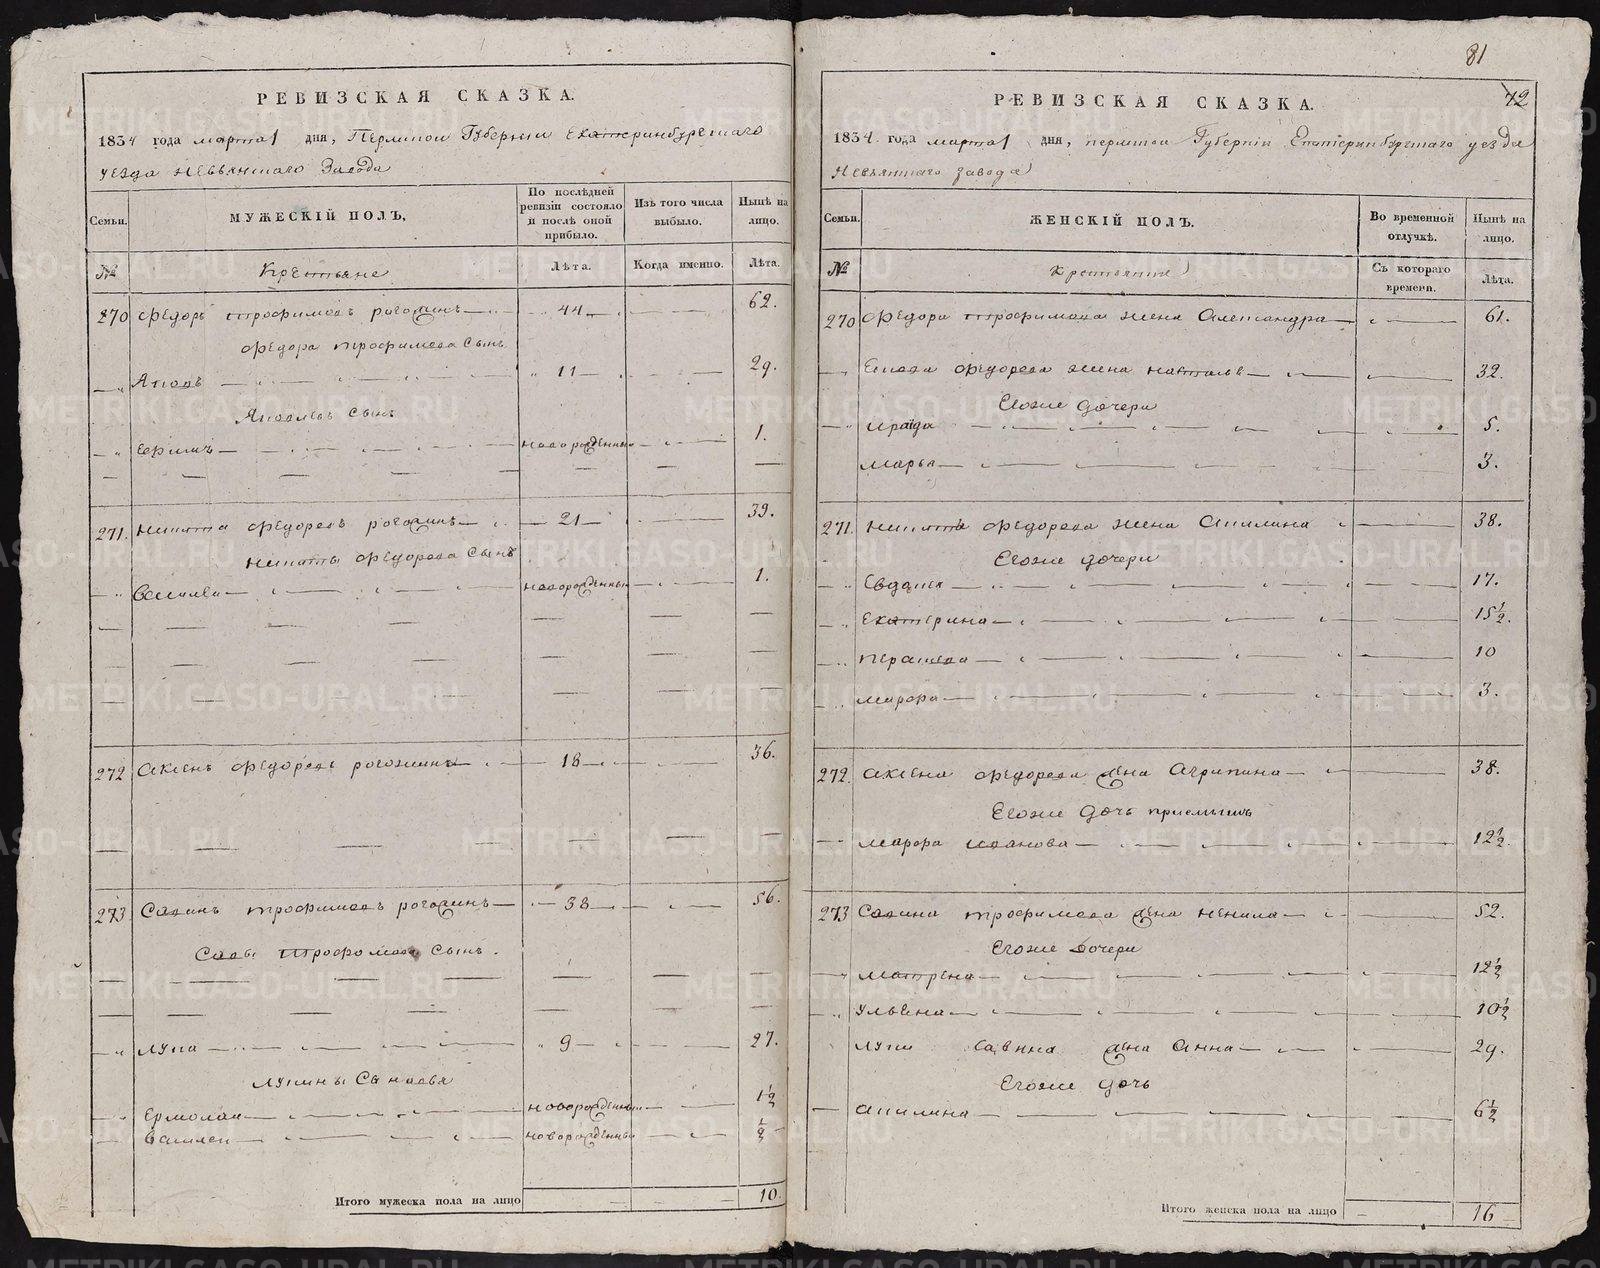 РЕВИЗСКАЯ СКАЗКА.
1834 года марта 1 дня, Пермской Губернии Екатеринбургскаго
уезда Невьянскаго Завода
Семьи.
МУЖЕСКІЙ ПОЛЪ,
По послѣдней ревизіи состояло и послѣ оной прибыло.
Изъ того числа выбыло.
Нынѣ на лицо.
№ Крестьяне Лѣта. Когда именно. Лѣта.
270 Федоръ Трофимовъ рогожинъ 44 62.
Федора трофимова сынъ
Яковъ 11 29.
Яковлевъ сынъ
Ефимъ новорожденный 1.
271. Никита федоровъ рогожинъ 21 39.
Никиты федорова сынъ
Василей новорожденный 1.
272 федоровъ рогожинъ 18 36.
273 Савинъ трофимовъ рогожинъ 38 56.
Савы Трофомова сынъ.
лупа 9 27.
лупины сыновья
Ермолай новорожденный 1½
Василей новорожденный ½
Итого мужеска пола на лицо 10.
81
72
РЕВИЗСКАЯ СКАЗКА.
1834 года марта 1 дня, пермской Губернии Екатеринбургскаго уезда
Невьянскаго завода
Семьи.
ЖЕНСКІЙ ПОЛЪ.
Во временной отлучкѣ.
Нынѣ на лицо.
№ крестьянъ Съ котораго времени. Лѣта.
270 федора трофимова жена Александра 61.
Якова федорова жена наталья 32.
Егоже дочери
ираида 5.
марья 3.
271. никиты федорова жена Акилина 38.
Егоже дочери
Евдокия 17.
Екатерина 15½.
парасковья 10
марфа 3.
272. федорова жена Агрипина 38.
Егоже дочь приемышъ
марфа иванова 12½
273 Савина трофимова жена ненила 52.
Егоже дочери
матрена 12½
ульяна 10½
лупы савина жена Анна 29.
Егоже дочь
акилина 6½
Итого женска пола на лицо 16
METRIKI.GASO-URAL.RU